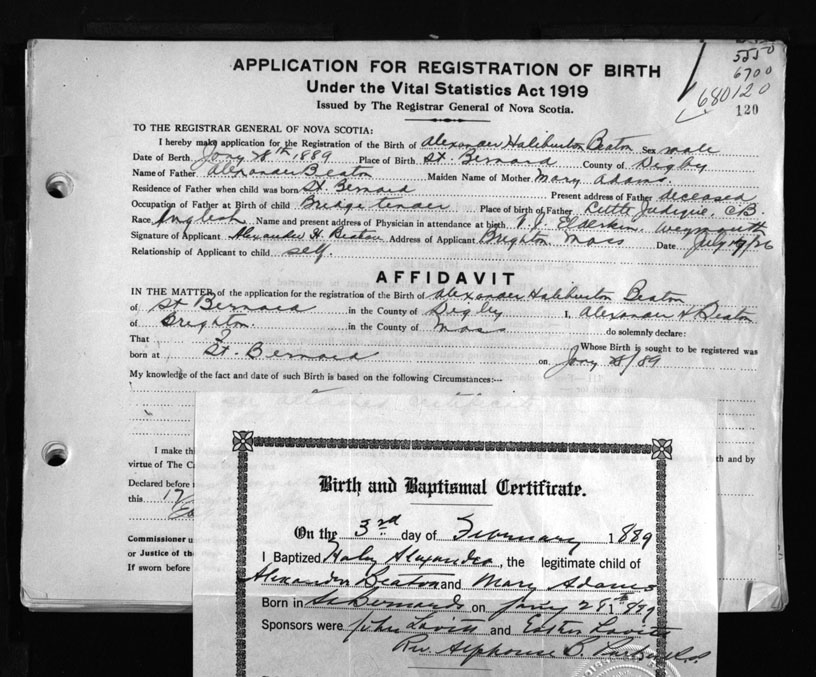 5550
6700
680120
120
APPLICATION FOR REGISTRATION OF BIRTH
Under the Vital Statistics Act 1919
Issued by The Registrar General of Nova Scotia.
TO THE REGISTRAR GENERAL OF NOVA SCOTIA:
I hereby make application for the Registration of the Birth of Alexander Haliburton Beaton Sex male
Date of Birth Jany 28th 1889 Place of Birth St. Bernard County of Digby
Name of Father Alexander Beaton Maiden Name of Mother Mary Adams
Residence of Father when child was born St. Bernard Present address of Father deceased
Occupation of Father at Birth of child Bridge tender Place of birth of Father Little Judique, C.B.
Race English Name and present address of Physician in attendance at birth Elderkin, Weymouth
Signature of Applicant Alexander H. Beaton Address of Applicant Brighton Mass Date July /26
Relationship of Applicant to child self.
AFFIDAVIT
IN THE MATTER of the application for the registration of the Birth of Alexander Haliburton Beaton
of St Bernard in the County of Digby I, Alexander H Beaton
of Brighton. in the County of Mass do solemnly declare:
That I Whose Birth is sought to be registered was
born at St. Bernard on Jany 28/89
My knowledge of the fact and date of such Birth is based on the following Circumstances:—
I make thi
th and by
virtue of The C
Declared before
this 17
Commissioner
or Justice of th
If sworn before
Birth and Baptismal Certificate.
On the 3rd day of February 1889
I Baptized Haley Alexander, the legitimate child of
Alexander Beaton and Mary Adams
Born in St Bernards on Jany 28th 1889
Sponsors were John Lovitt and Esther Lovitt
Rev. Alphonse B.